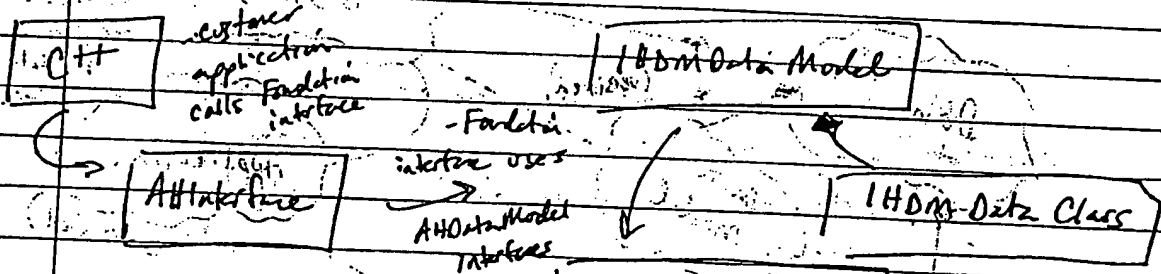 C++
customer
application
calls Foundation
interface
IHDMData Model
- Foundation
interface uses
AHInterface
AHDataModel
interfaces
IHDM-Data Class